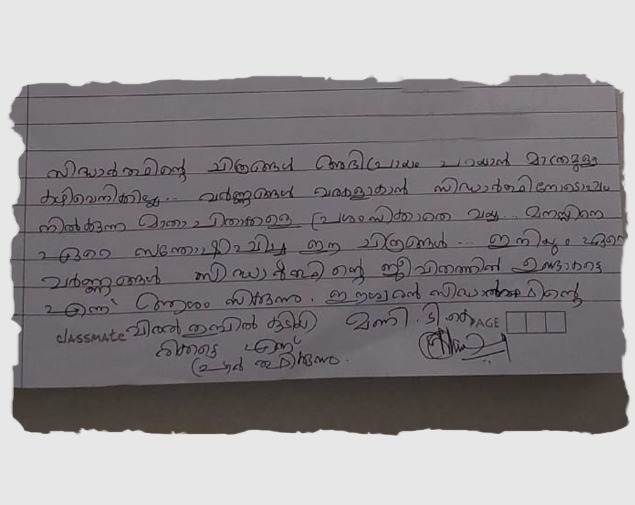 സിദ്ധാർത്ഥിന്റെ ചിത്രങ്ങൾ അഭിപ്രായം പറയാൻ മാത്രമുള്ള
കഴിവെനിക്കില്ല... വർണ്ണങ്ങൾ വരകളാകാൻ സിദ്ധാർത്ഥിനോടൊപ്പം
നിൽക്കുന്ന മാതാപിതാക്കളെ പ്രശംസിക്കാതെ വയ്യ... മനസ്സിനെ
ഏറെ സന്തോഷിപ്പിച്ച ഈ ചിത്രങ്ങൾ... ഇനിയും ഏറെ
വർണ്ണങ്ങൾ സിദ്ധാർത്ഥിന്റെ ജീവിതത്തിൽ ഉണ്ടാകട്ടെ
എന്ന് ആശംസിക്കുന്നു. ഈശ്വരൻ സിദ്ധാർത്ഥിന്റെ
classmate വിരൽത്തുമ്പിൽ കുടിയി മണി. ടി. കെ PAGE
രിക്കട്ടെ എന്ന്
പ്രാർത്ഥിക്കുന്നു.